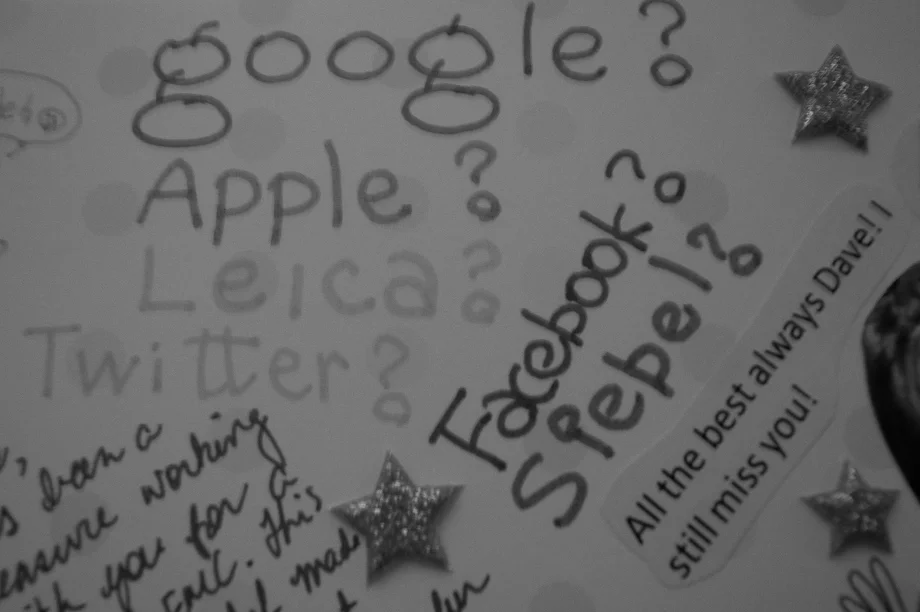 google?
Apple?
Leica?
Twitter?
Facebook?
Siebel?
All the best always Dave! I
still miss you!
been a
working
you for a
This
made